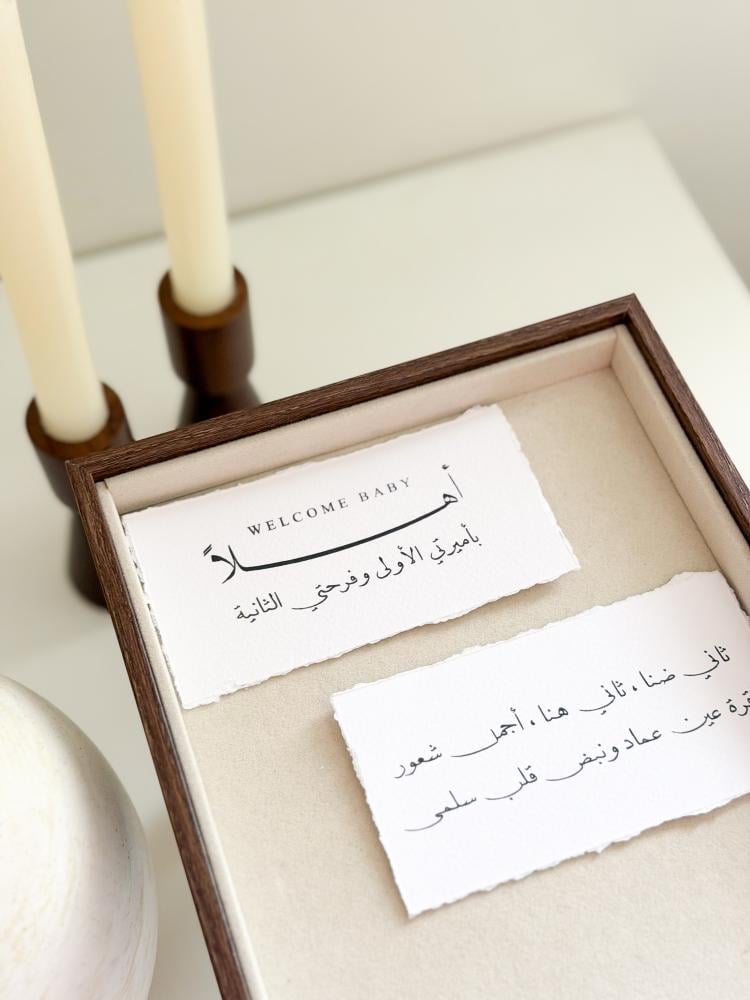 WELCOME BABY
أهــلاً
بأميرتي الأولى وفرحتي الثانية
ثاني ضنا ، ثاني هنا ، أجمل شعور
قرة عين عماد ونبض قلب سلمى